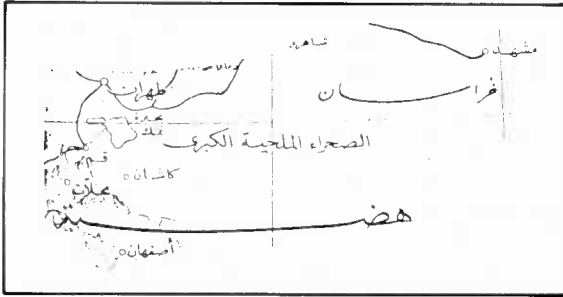 مشهد
طهران
خراسان
الصحراء الملحية الكبرى
قم
كاشان
محلات
هضبة
أصفهان